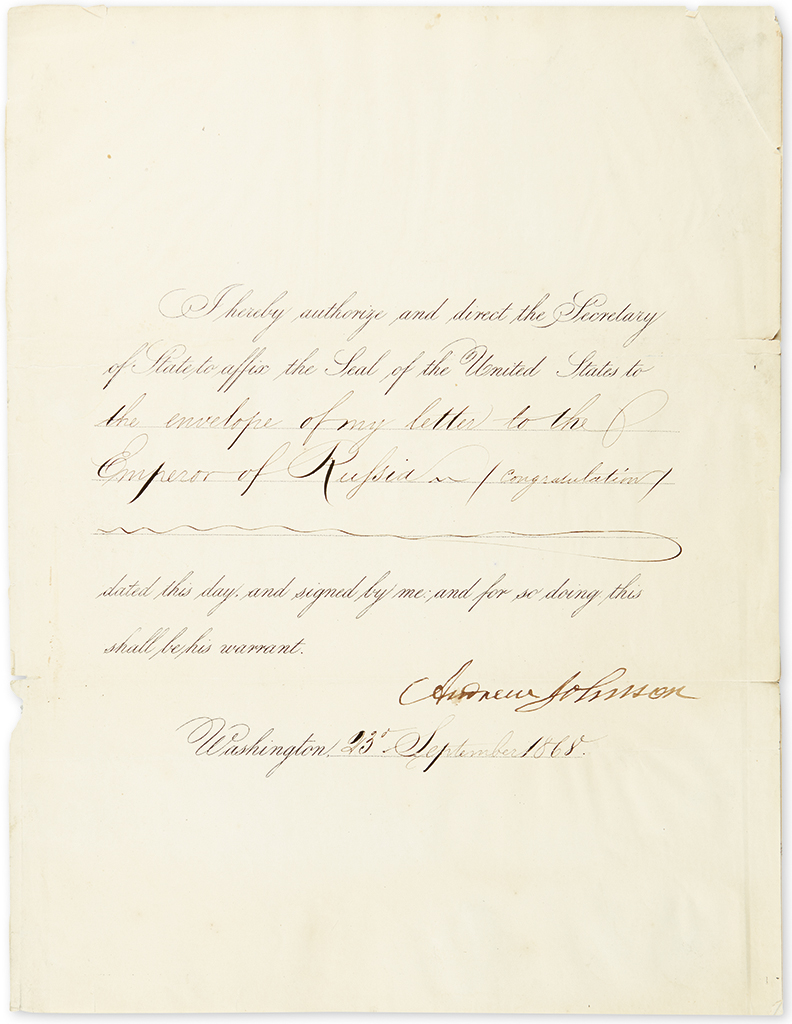 I hereby authorize and direct the Secretary
of State to affix the Seal of the United States to
the envelope of my letter to the
Emperor of Russia ~ (congratulation)
dated this day, and signed by me; and for so doing this
shall be his warrant.
Andrew Johnson
Washington, 23d September 1868.